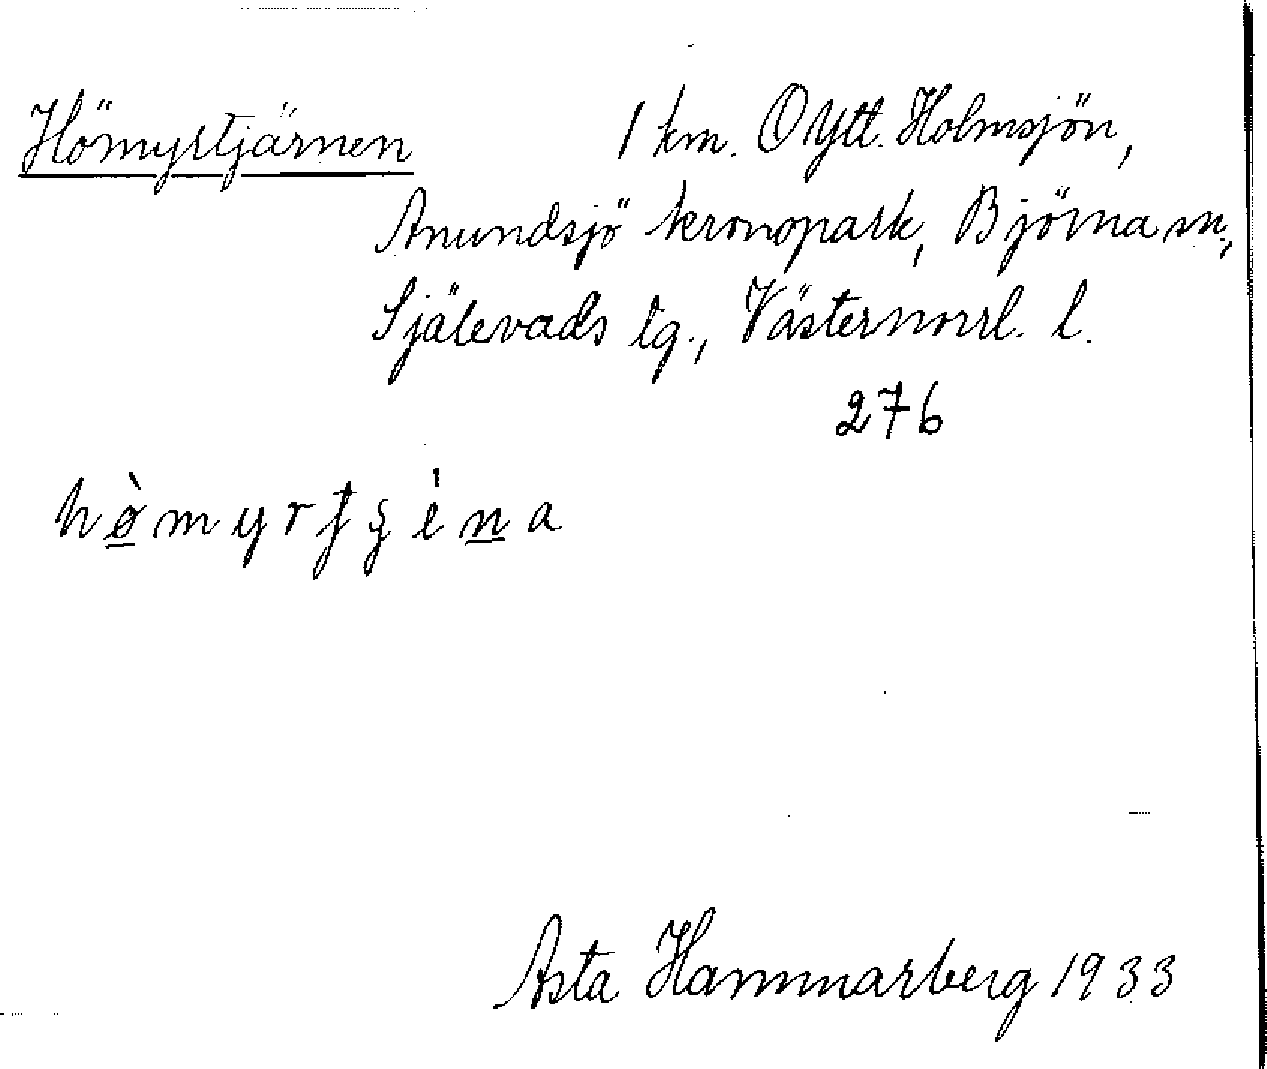 Hömyrtjärnen 1 km. O Ytt. Holmsjön,
Anundsjö kronopark, Björna sn,
Själevads tg., Västernorrl. l.
276
Asta Hammarberg 1933